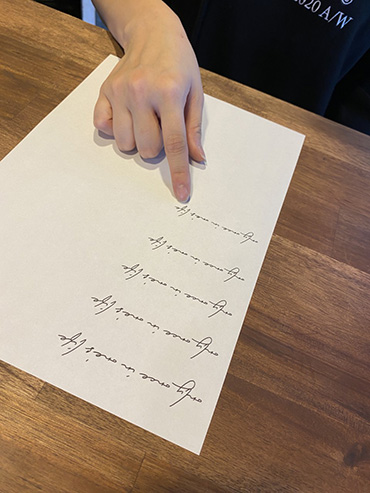 2020 A/W
only once in one's life
only once in one's life
only once in one's life
only once in one's life
only once in one's life